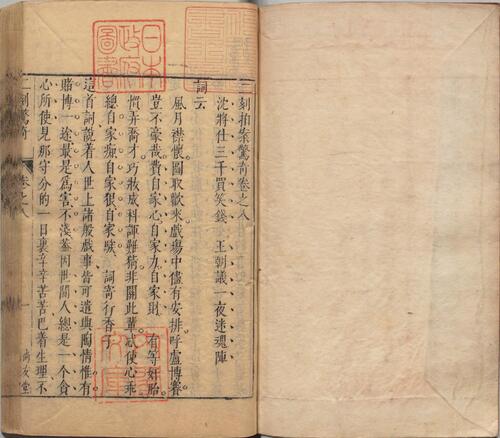 二刻拍案驚奇卷之八
沈將仕三千買笑錢 王朝議一夜迷魂陣
詞云
風月襟懷圖取歡來戲場中儘有安排呼盧博賽
豈不豪哉費自家心自家力自家財 有等奸胎
慣弄喬才巧妝成科諢難猜非關此輩忒使心乖
總自家癡自家狠自家騃 詞寄行香子
這首詞說着人世上諸般戲事皆可遣興陶情惟有
賭博一途最是爲害不淺葢因世間人總是一个貪
心所使見那守分的一日裏辛辛苦苦巴着生理不
二刻驚奇 卷之八 一 尚友堂
日本
政府
圖書